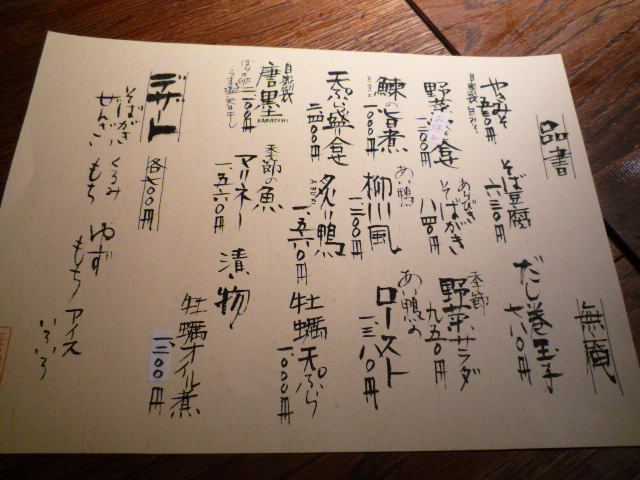 品書
無庵
やきみそ
自家製甘みそ
そば豆腐
六三〇円
だし巻玉子
七八〇円
野菜
一二〇〇円
あらびき
そばがき
八四〇円
季節
野菜サラダ
九五〇円
鰊の旨煮
にしん
一、〇〇〇円
あい鴨
柳川風
一、三〇〇円
あい鴨の
ロースト
一、三八〇円
天ぷら盛合
二、四〇〇円
炙り鴨
ABURI
一、五六〇円
牡蠣天ぷら
一、〇〇〇円
自家製
唐墨
KARASUMI
ぼらの卵
うす塩天日干し
季節の魚
マリネー
一、五六〇円
漬物
牡蠣オイル煮
一、三〇〇円
デザート
各六〇〇円
そばがき
ぜんざい
くるみ
もち
ゆず
もち
アイス
いろいろ